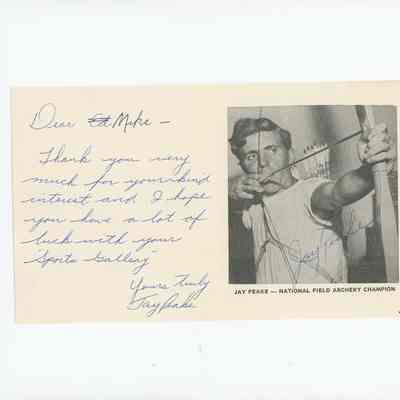 Dear Mike —
Thank you very
much for your kind
interest and I hope
you have a lot of
luck with your
"Sports Gallery"
Yours truly
Jay Peake
Jay Peake
JAY PEAKE — NATIONAL FIELD ARCHERY CHAMPION